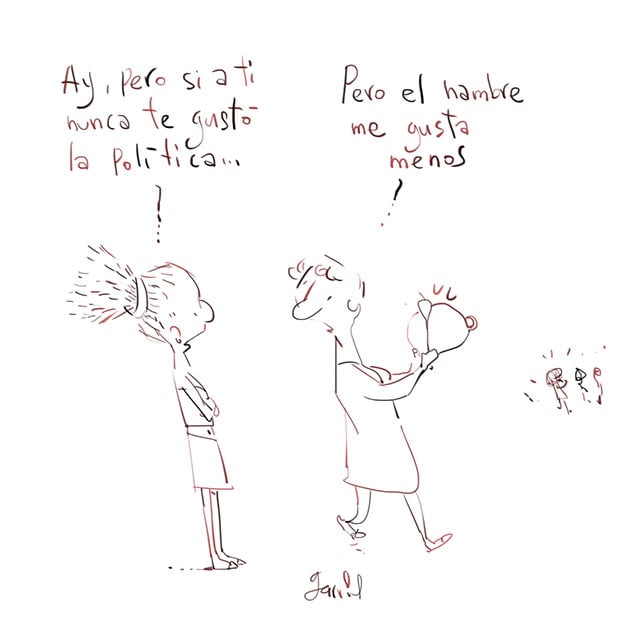 Ay, pero si a ti
nunca te gustó
la política...
Pero el hambre
me gusta
menos